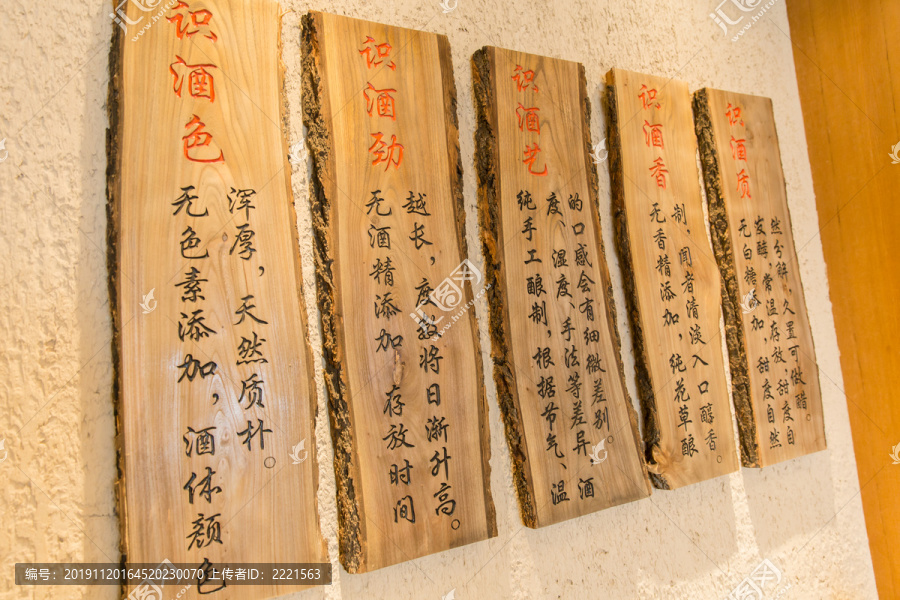 识酒色
无色素添加，酒体颜色
浑厚，天然质朴。
识酒劲
无酒精添加 存放时间
越长，度数将日渐升高。
识酒艺
纯手工酿制，根据节气、温
度、湿度、手法等差异，酒
的口感会有细微差别。
识酒香
无香精添加，纯花草酿
制，闻者清淡入口醇香。
识酒质
无白糖添加，甜度自然
发酵，常温存放，甜度自
然分解，久置可做醋。
编号：20191120164520230070 上传者ID：2221563